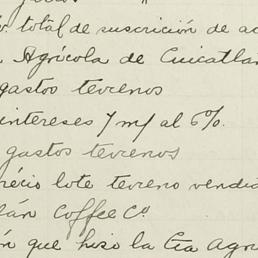 total de suscrición de ac
Agrícola de Cuicatlán
gastos terrenos
intereses 7 m/ al 6%.
gastos terrenos
recio lote terreno vendi
lán Coffee Cº
ón que hiso la Cía Agrí